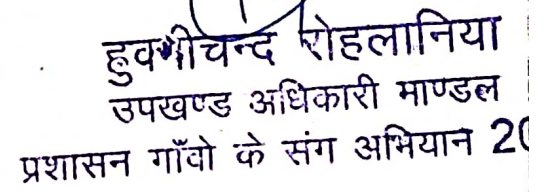 हुक्मीचन्द रोहलानिया
उपखण्ड अधिकारी माण्डल
प्रशासन गाँवो के संग अभियान 20